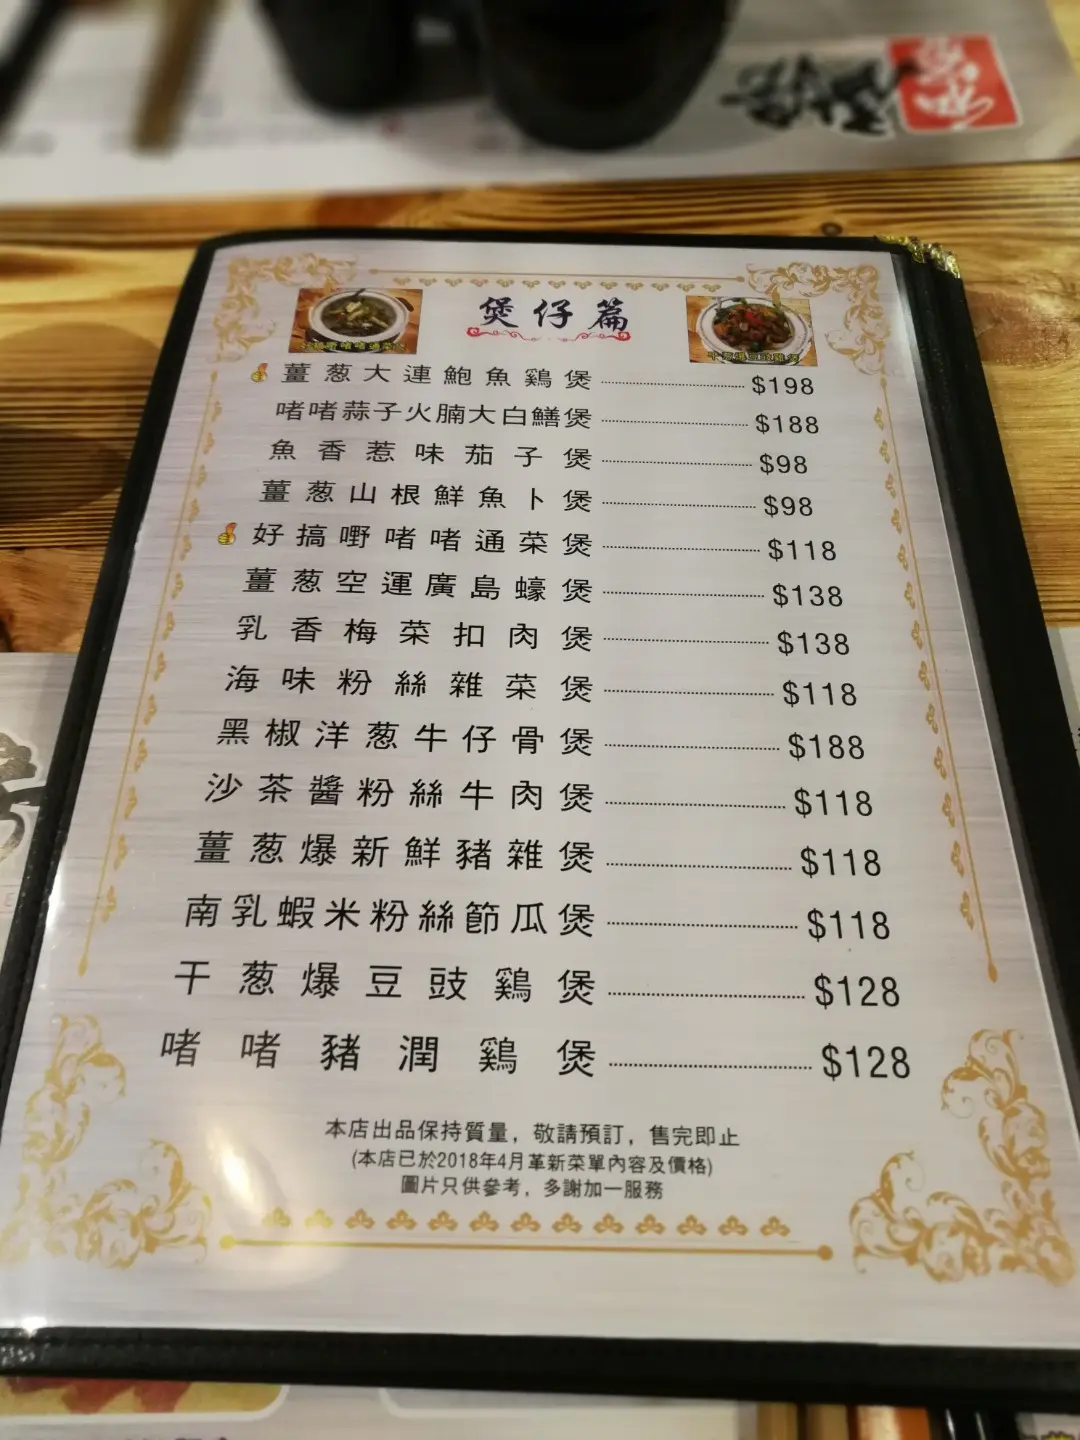 煲仔篇
薑葱大連鮑魚鷄煲 $198
啫啫蒜子火腩大白鱔煲 $188
魚香惹味茄子煲 $98
薑葱山根鮮魚卜煲 $98
好搞嘢啫啫通菜煲 $118
薑葱空運廣島蠔煲 $138
乳香梅菜扣肉煲 $138
海味粉絲雜菜煲 $118
黑椒洋葱牛仔骨煲 $188
沙茶醬粉絲牛肉煲 $118
薑葱爆新鮮豬雜煲 $118
南乳蝦米粉絲節瓜煲 $118
干葱爆豆豉鷄煲 $128
啫啫豬潤鷄煲 $128
本店出品保持質量，敬請預訂，售完即止
(本店已於2018年4月革新菜單內容及價格)
圖片只供參考，多謝加一服務